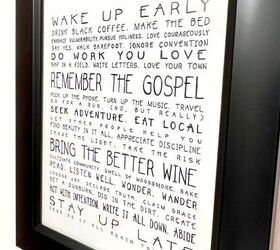 WAKE UP EARLY
DRINK BLACK COFFEE. MAKE THE BED
EMBRACE VULNERABILITY. PURSUE HOLINESS. LOVE COURAGEOUSLY
SAY YES. WALK BAREFOOT. IGNORE CONVENTION
DO WORK YOU LOVE
NAP IN A FIELD. WRITE LETTERS. LOVE YOUR TOWN
REMEMBER THE GOSPEL
PICK UP THE PHONE. TURN UP THE MUSIC. TRAVEL
GO FOR A RUN. (NO, BUT REALLY)
SEEK ADVENTURE. EAT LOCAL
LET OTHER PEOPLE HELP YOU
FIND BEAUTY IN IT ALL. APPRECIATE DISCIPLINE
CHASE THE LIGHT. TAKE THE RISK
BRING THE BETTER WINE
CULTIVATE COMMUNITY. SMELL OF WOODSMOKE. BAKE
READ. LISTEN WELL. WONDER. WANDER
CHOOSE JOY. DECLARE TRUTH. CLAIM GRACE
GET A SUNBURN. DIG IN THE DIRT. CREATE
ACT WITH INTENTION. WRITE IT ALL DOWN. ABIDE
STAY UP LATE
DO IT ALL AGAIN